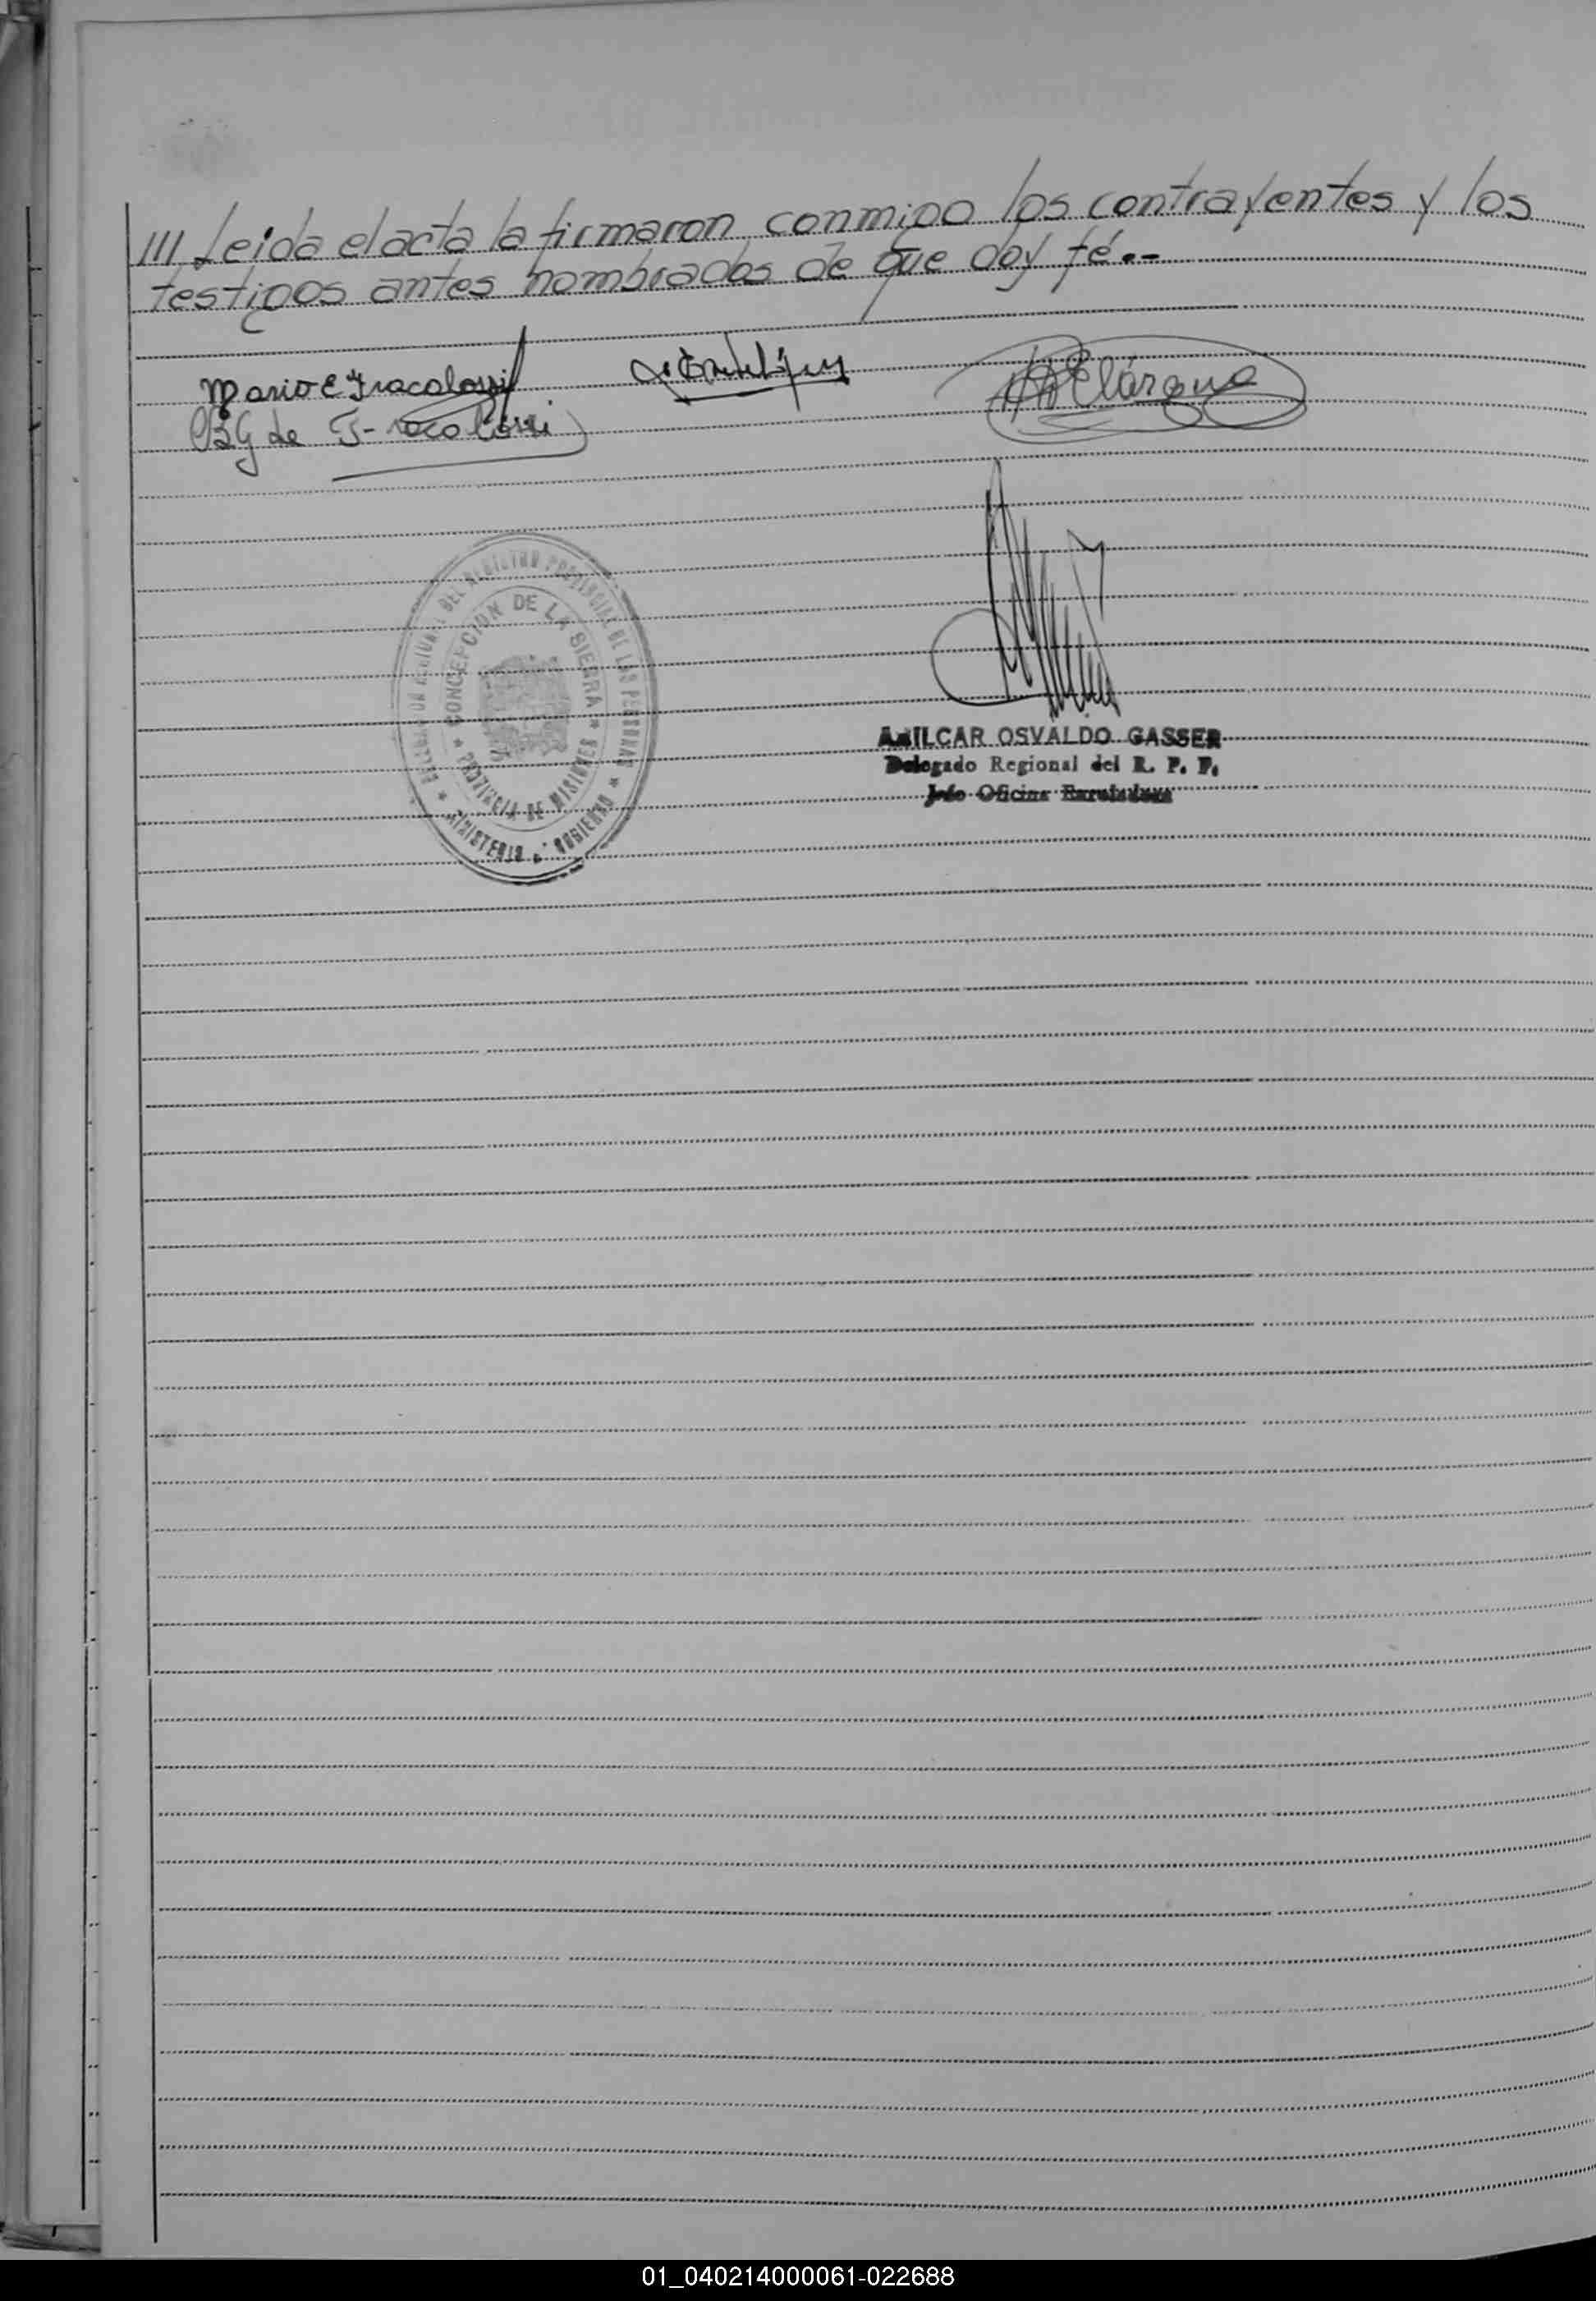 /// Leida el acta la firmaron conmigo los contrayentes y los
testigos antes nombrados de que doy fé.--
Mario E Fracalossi
BG de Fracalossi
DELEGACION REGIONAL DEL REGISTRO PROVINCIAL DE LAS PERSONAS * MINISTERIO DE GOBIERNO *
CONCEPCION DE LA SIERRA * PROVINCIA DE MISIONES *
AMILCAR OSVALDO GASSER
Delegado Regional del R. P. P.
Jefe Oficina Enroladora
01_040214000061-022688